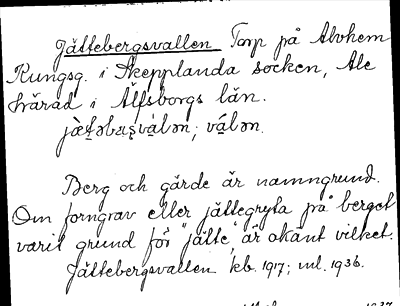 Jättebergsvallen Torp på Alvhem
Kungsg. i Skepplanda socken, Ale
härad i Älfsborgs län.
vá̀lən.
Berg och gärde är namngrund.
Om forngrav eller jättegryta på berget
varit grund för "jätte", är okänt vilket.
Jättebergsvallen kb. 1917; ml. 1936.